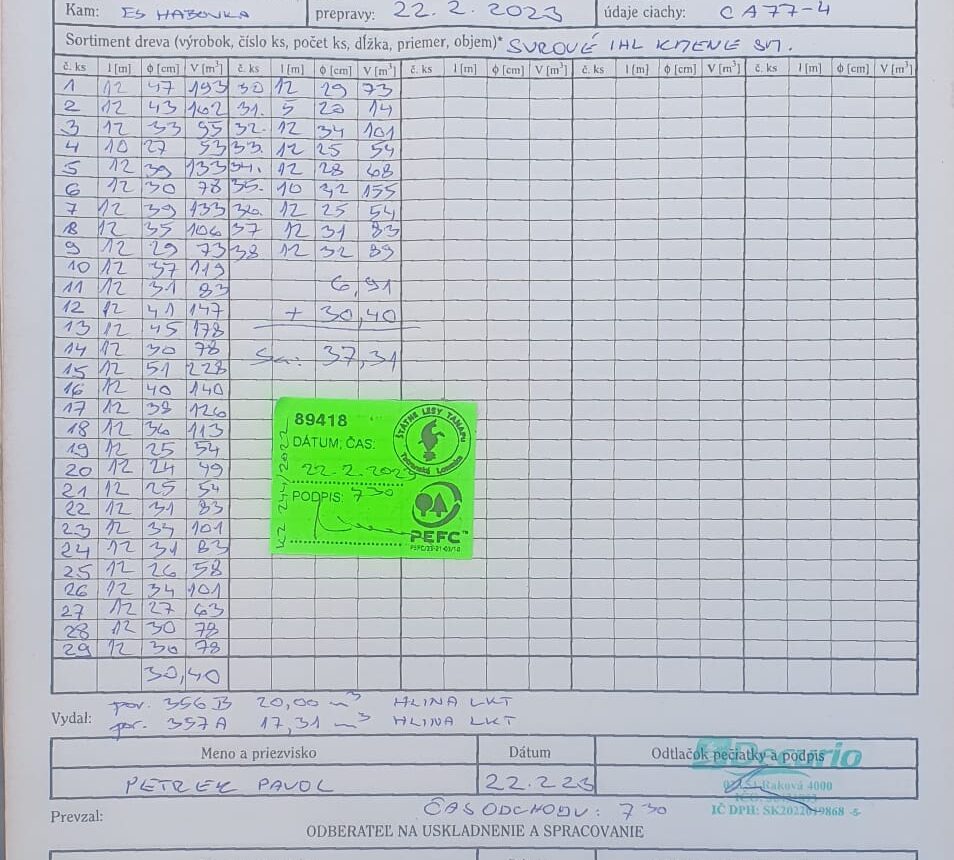 Kam: ES HABOVKA prepravy: 22. 2. 2023 údaje ciachy: CA77-4
Sortiment dreva (výrobok, číslo ks, počet ks, dĺžka, priemer, objem)* SUROVÉ IHL KMENE SM.
č. ks l [m] ϕ [cm] V [m³] č. ks l [m] ϕ [cm] V [m³] č. ks l [m] ϕ [cm] V [m³] č. ks l [m] ϕ [cm] V [m³] č. ks l [m] ϕ [cm] V [m³]
1 12 47 193 30 12 29 73
2 12 43 162 31. 5 20 14
3 12 33 95 32. 12 34 101
4 10 27 53 33. 12 25 54
5 12 39 133 34. 12 28 68
6 12 30 78 35. 10 32 155
7 12 39 133 36. 12 25 54
8 12 35 106 37 12 31 83
9 12 29 73 38 12 32 89
10 12 37 119
11 12 31 83 6,91
12 12 41 147 + 30,40
13 12 45 178
14 12 30 78 Sa: 37,31
15 12 51 228
16 12 40 140
17 12 38 126
18 12 36 113
19 12 25 54
20 12 24 49
21 12 25 54
22 12 31 83
23 12 34 101
24 12 31 83
25 12 26 58
26 12 34 101
27 12 27 63
28 12 30 78
29 12 30 78
30,40
89418
ŠTÁTNE LESY TANAPU
Tatranská Lomnica
DÁTUM, ČAS:
22.2.2023
PODPIS: 7 30
KZ 244/2022
PEFC™
Vydal: por. 356 B 20,00 m³ HLINA LKT
por. 357 A 17,31 m³ HLINA LKT
Meno a priezvisko Dátum Odtlačok pečiatky a podpis
PETREK PAVOL 22.2.23
Raková 4000
IČ DPH:
Prevzal: ČAS ODCHODU: 7 30
ODBERATEĽ NA USKLADNENIE A SPRACOVANIE